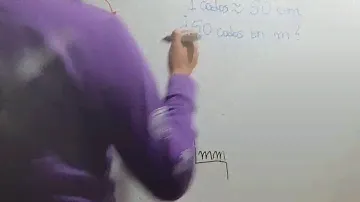 1 codos ≈ 50 cm
¿50 codos en m?
mm